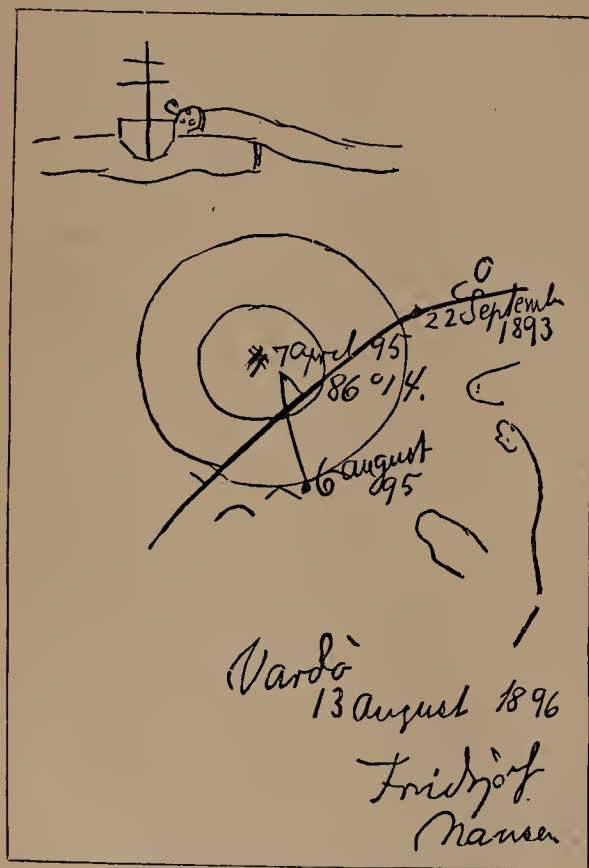 22 Septemb
1893
7 april 95
86°14.
6 august
95
Vardò
13 august 1896
Fridtjof
Nansen